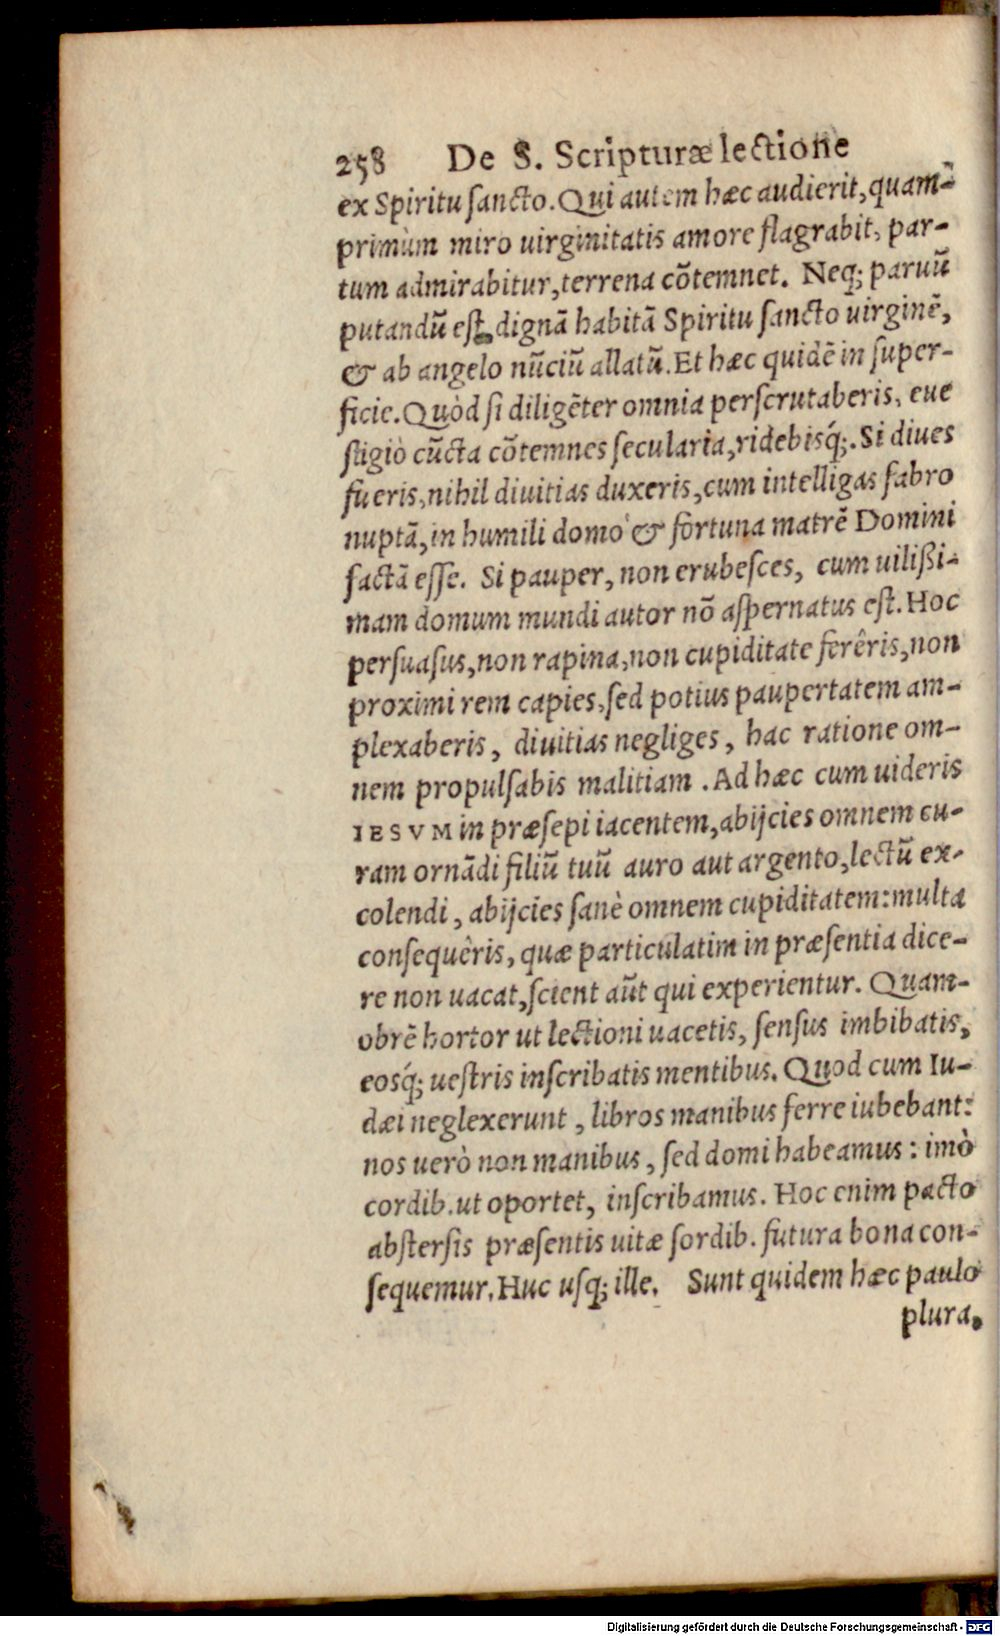 258 De S. Scripturæ lectione
ex Spiritu ſancto. Qui autem hæc audierit, quam-
primùm miro uirginitatis amore flagrabit, par-
tum admirabitur, terrena cõtemnet. Neq; paruũ
putandũ eſt, dignã habitã Spiritu ſancto uirginẽ,
& ab angelo nũciũ allatũ. Et hæc quidẽ in ſuper-
ficie. Quòd ſi diligẽter omnia perſcrutaberis, eue
ſtigiò cũcta cõtemnes ſecularia, ridebisq́;. Si diues
fueris, nihil diuitias duxeris, cum intelligas fabro
nuptã, in humili domo & fortuna matrẽ Domini
factã eſſe. Si pauper, non erubeſces, cum uilißi-
mam domum mundi autor nõ aſpernatus eſt. Hoc
perſuaſus, non rapina, non cupiditate ferêris, non
proximi rem capies, ſed potius paupertatem am-
plexaberis, diuitias negliges, hac ratione om-
nem propulſabis malitiam. Ad hæc cum uideris
IESVM in præſepi iacentem, abijcies omnem cu-
ram ornãdi filiũ tuũ auro aut argento, lectũ ex-
colendi, abijcies ſanè omnem cupiditatem: multa
conſequêris, quæ particulatim in præſentia dice-
re non uacat, ſcient aũt qui experientur. Quam-
obrẽ hortor ut lectioni uacetis, ſenſus imbibatis,
eosq́; ueſtris inſcribatis mentibus. Quod cum Iu-
dæi neglexerunt, libros manibus ferre iubebant:
nos uerò non manibus, ſed domi habeamus: imò
cordib. ut oportet, inſcribamus. Hoc enim pacto
abſterſis præſentis uitæ ſordib. futura bona con-
ſequemur. Huc uſq; ille. Sunt quidem hæc paulo
plura,
Digitalisierung gefördert durch die Deutsche Forschungsgemeinschaft - DFG